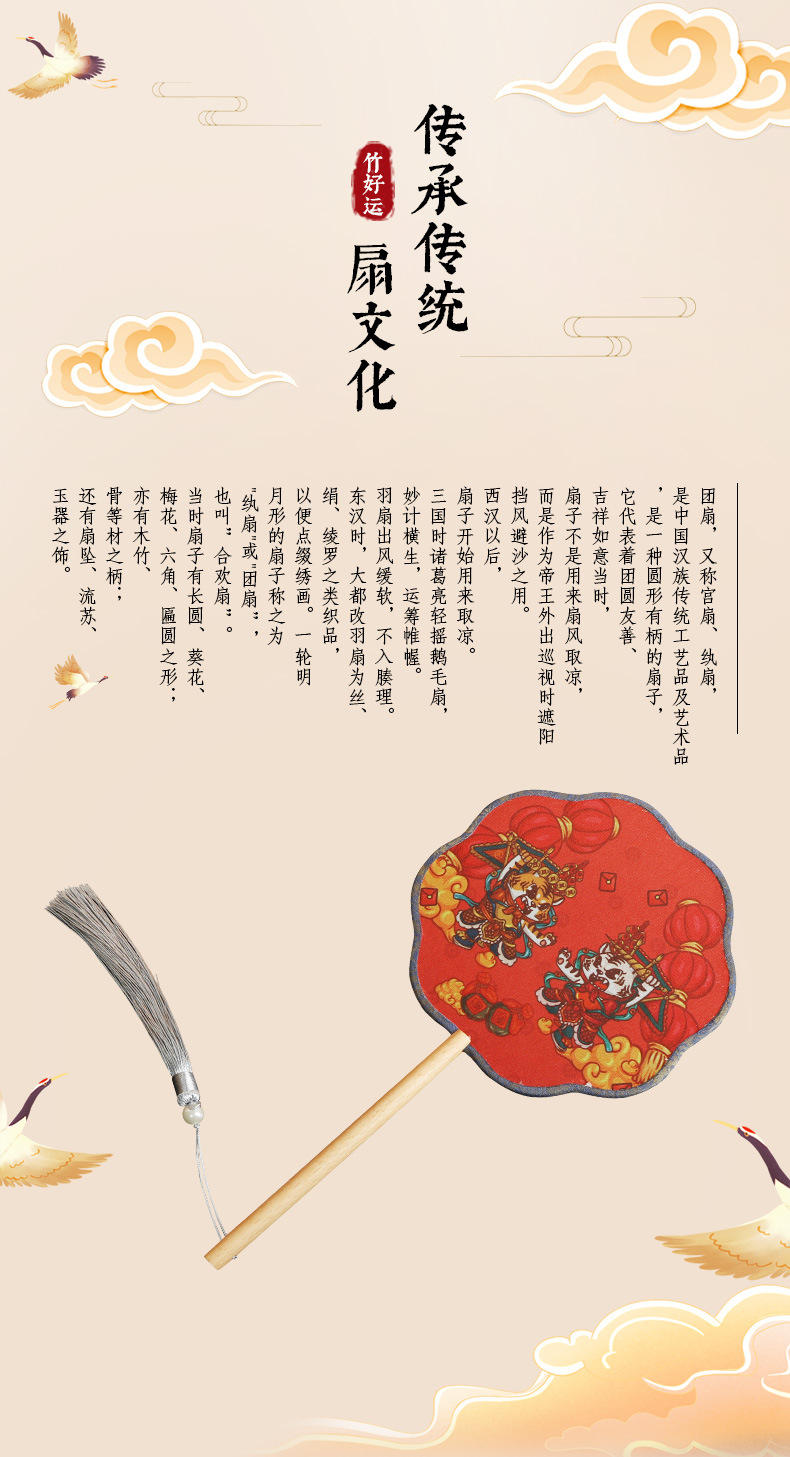 传承传统
竹好运
扇文化
团扇，又称宫扇、纨扇，
是中国汉族传统工艺品及艺术品
，是一种圆形有柄的扇子，
它代表着团圆友善、
吉祥如意当时，
扇子不是用来扇风取凉，
而是作为帝王外出巡视时遮阳
挡风避沙之用。
西汉以后，
扇子开始用来取凉。
三国时诸葛亮轻摇鹅毛扇，
妙计横生，运筹帷幄。
羽扇出风缓软，不入腠理。
东汉时，大都改羽扇为丝、
绢、绫罗之类织品，
以便点缀绣画。一轮明
月形的扇子称之为
"纨扇"或"团扇"，
也叫”合欢扇”。
当时扇子有长圆、葵花、
梅花、六角、匾圆之形；
亦有木竹、
骨等材之柄；
还有扇坠、流苏、
玉器之饰。